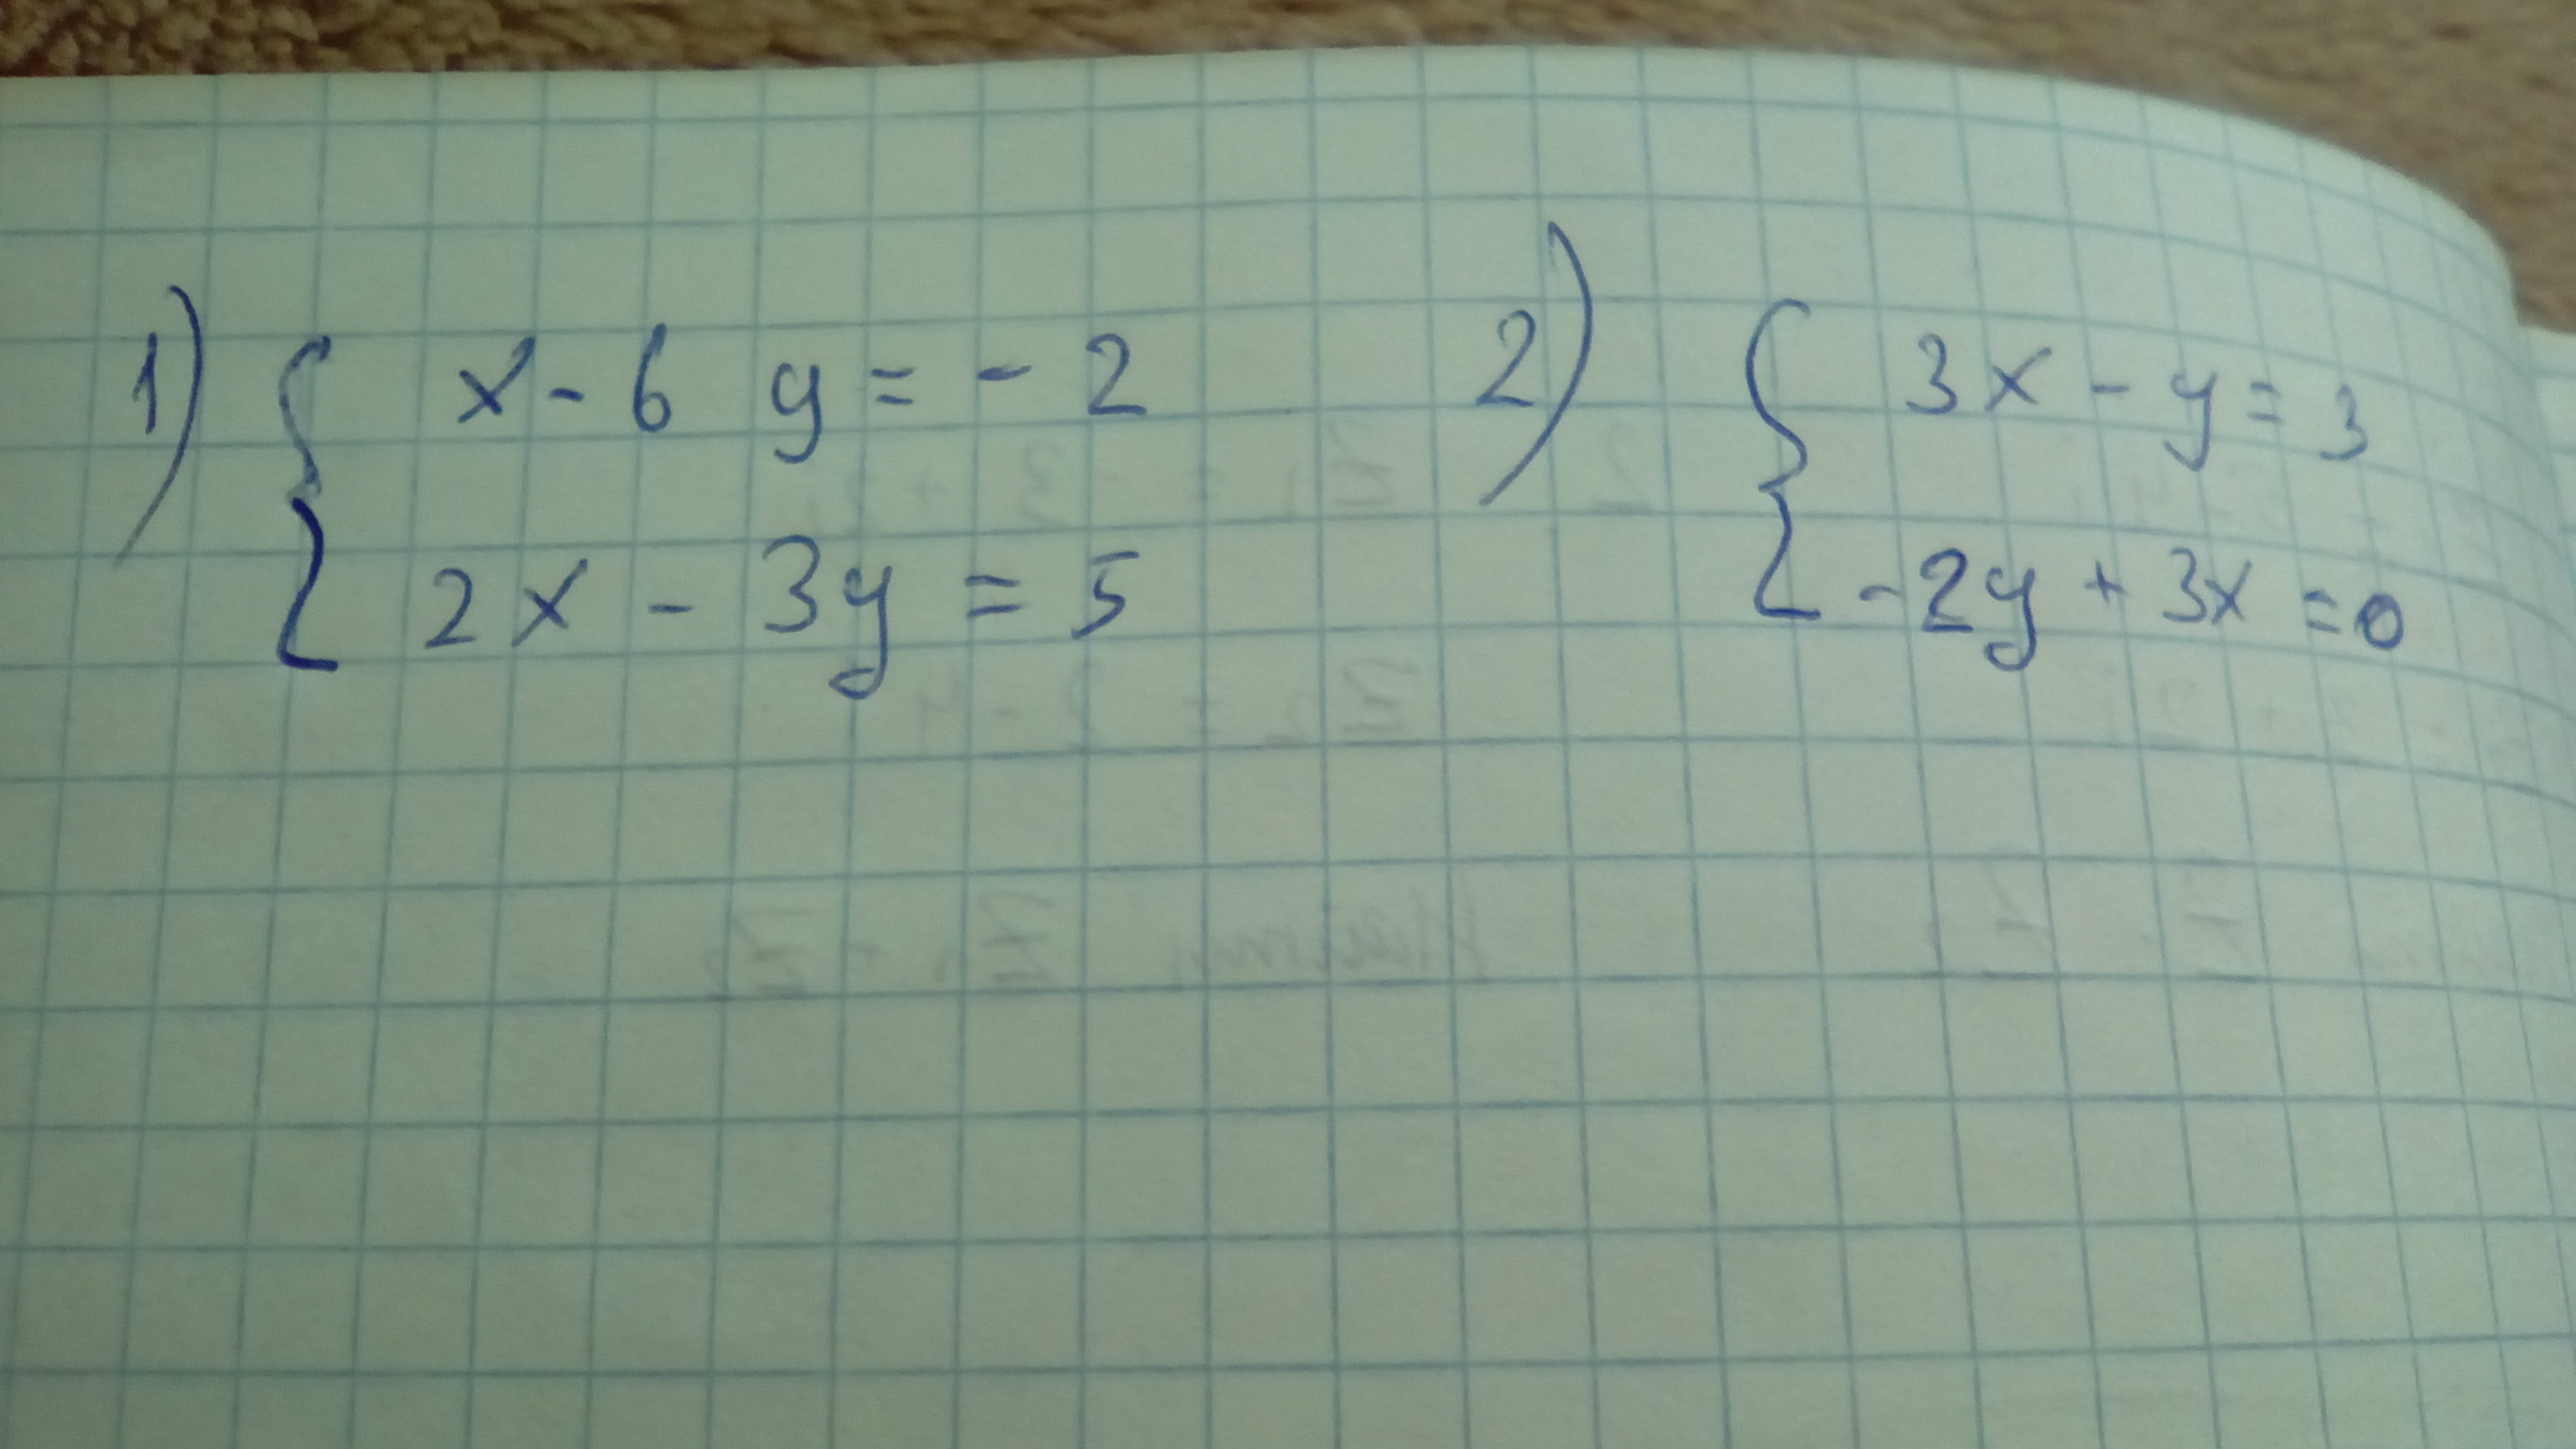 1) { x - 6 y = - 2
2x - 3y = 5
2) { 3x - y = 3
-2y + 3x = 0